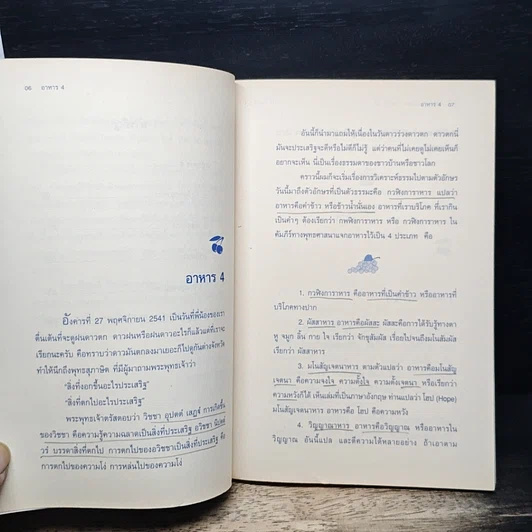 06 อาหาร 4
อาหาร 4
อังคารที่ 27 พฤศจิกายน 2541 เป็นวันที่พี่น้องของเรา
ตื่นเต้นที่จะดูฝนดาวตก ดาวฝนหรือฝนดาวอะไรก็แล้วแต่ที่เราจะ
เรียกนะครับ คือทราบว่าดาวมันตกลงมาเยอะก็ไปดูกันต่างจังหวัด
ทำให้นึกถึงพุทธสุภาษิต ที่มีผู้มาถามพระพุทธเจ้าว่า
"สิ่งที่งอกขึ้นอะไรประเสริฐ"
"สิ่งที่ตกไปอะไรประเสริฐ"
พระพุทธเจ้าตรัสตอบว่า วิชชา อุปฺปตตํ เสฏฺฐํ การเกิดขึ้น
ของวิชชา คือความรู้ความฉลาดเป็นสิ่งที่ประเสริฐ อวิชชา
วรํ บรรดาสิ่งที่ตกไป การตกไปของอวิชชาเป็นสิ่งที่ประเสริฐ คือ
การตกไปของความโง่ การหล่นไปของความโง่
อาหาร 4 07
อันนี้ก็นำมาแถมให้เนื่องในวันดาวร่วงดาวตก ดาวตกนี่
มันจะประเสริฐจะดีหรือไม่ดีก็ไม่รู้ แต่ว่าคนที่ไม่เคยดูไม่เคยเห็นก็
อยากจะเห็น นี่เป็นเรื่องธรรมดาของชาวบ้านหรือชาวโลก
คราวนี้ผมก็จะเริ่มเรื่องการวิเคราะห์ธรรมไปตามตัวอักษร
วันนี้มาถึงตัวอักษรที่เป็นตัวธรรมะคือ กวฬิงการาหาร แปลว่า
อาหารคือคำข้าว หรือข้าวน้ำนั่นเอง อาหารที่เราบริโภค ที่เรากิน
เป็นคำๆ ต้องเรียกว่า กพฬิงการาหาร หรือ กวฬิงการาหาร ใน
คัมภีร์ทางพุทธศาสนาแจกอาหารไว้เป็น 4 ประเภท คือ
1. กวฬิงการาหาร คืออาหารที่เป็นคำข้าว หรืออาหารที่
บริโภคทางปาก
2. ผัสสาหาร อาหารคือผัสสะ ผัสสะคือการได้รับรู้ทางตา
หู จมูก ลิ้น กาย ใจ เรียกว่า จักขุสัมผัส เรื่อยไปจนถึงมโนสัมผัส
เรียกว่า ผัสสาหาร
3. มโนสัญเจตนาหาร ตามตัวแปลว่า อาหารคือมโนสัญ
เจตนา คือความจงใจ ความตั้งใจ ความตั้งเจตนา หรือเรียกว่า
ความหวังก็ได้ เห็นเล่มที่เป็นภาษาอังกฤษ ท่านแปลว่า โฮป (Hope)
มโนสัญเจตนาหาร อาหารคือ โฮป คือความหวัง
4. วิญญาณาหาร อาหารคือวิญญาณ หรืออาหารใน
วิญญาณ อันนี้แปล และตีความได้หลายอย่าง ถ้าเอาตาม